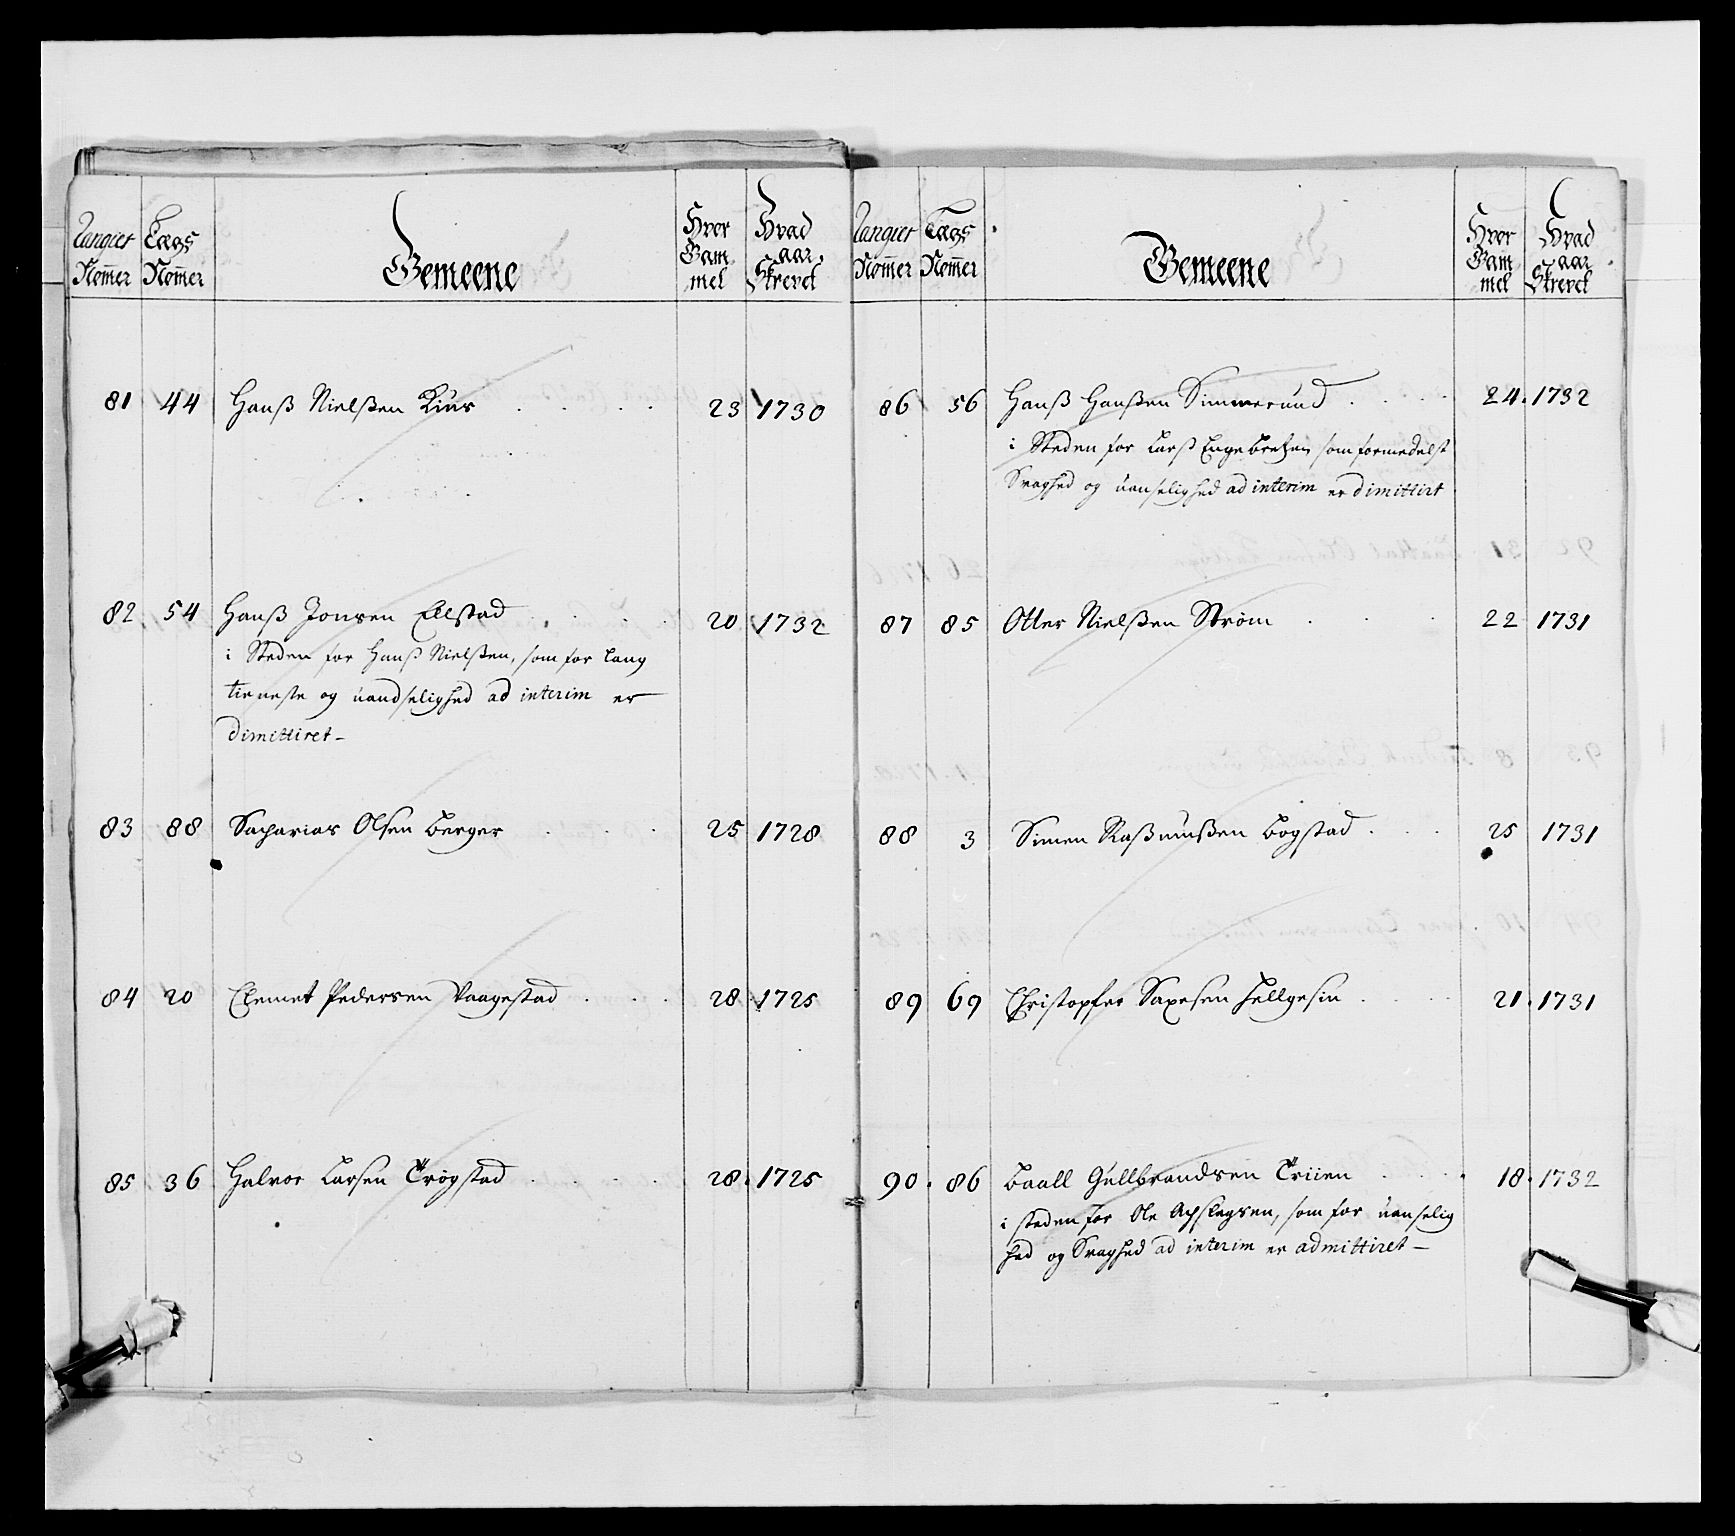 Rangier Nom̄er Lægs Nom̄er Gemeene Hvor Gammel Hvad aar Skrevet
81 44 Hanß Nielßen Kius 23 1730
82 54 Hanß Jonsen Elstad 20 1732
i Steden for Hanß Nielßen, som for lang
tieneste og uandselighed ad interim er
dimittiret
83 88 Sacharias Olsen Berger 25 1728
84 20 Clemet Pedersen Vaagestad 28 1725
85 36 Halvor Larsen Trøgstad 28 1725
Rangier Nom̄er Lægs Nom̄er Gemeene Hvor Gammel Hvad aar Skrevet
86 56 Hanß Hanßen Simmerund 24 1732
i Steden for Larß Engebretzen som formedelst
Svaghed og uanselighed ad interim er dimittirt
87 85 Otter Nielßen Strøm 22 1731
88 3 Simen Raßmußen Bogstad 25 1731
89 69 Christopher Saxesen Hellgesin 21 1731
90 86 Baall Gullbrandsen Triien 18 1732
i steden for Ole Apslegsen, som for uanselig
hed og Svaghed ad interim er admittiret